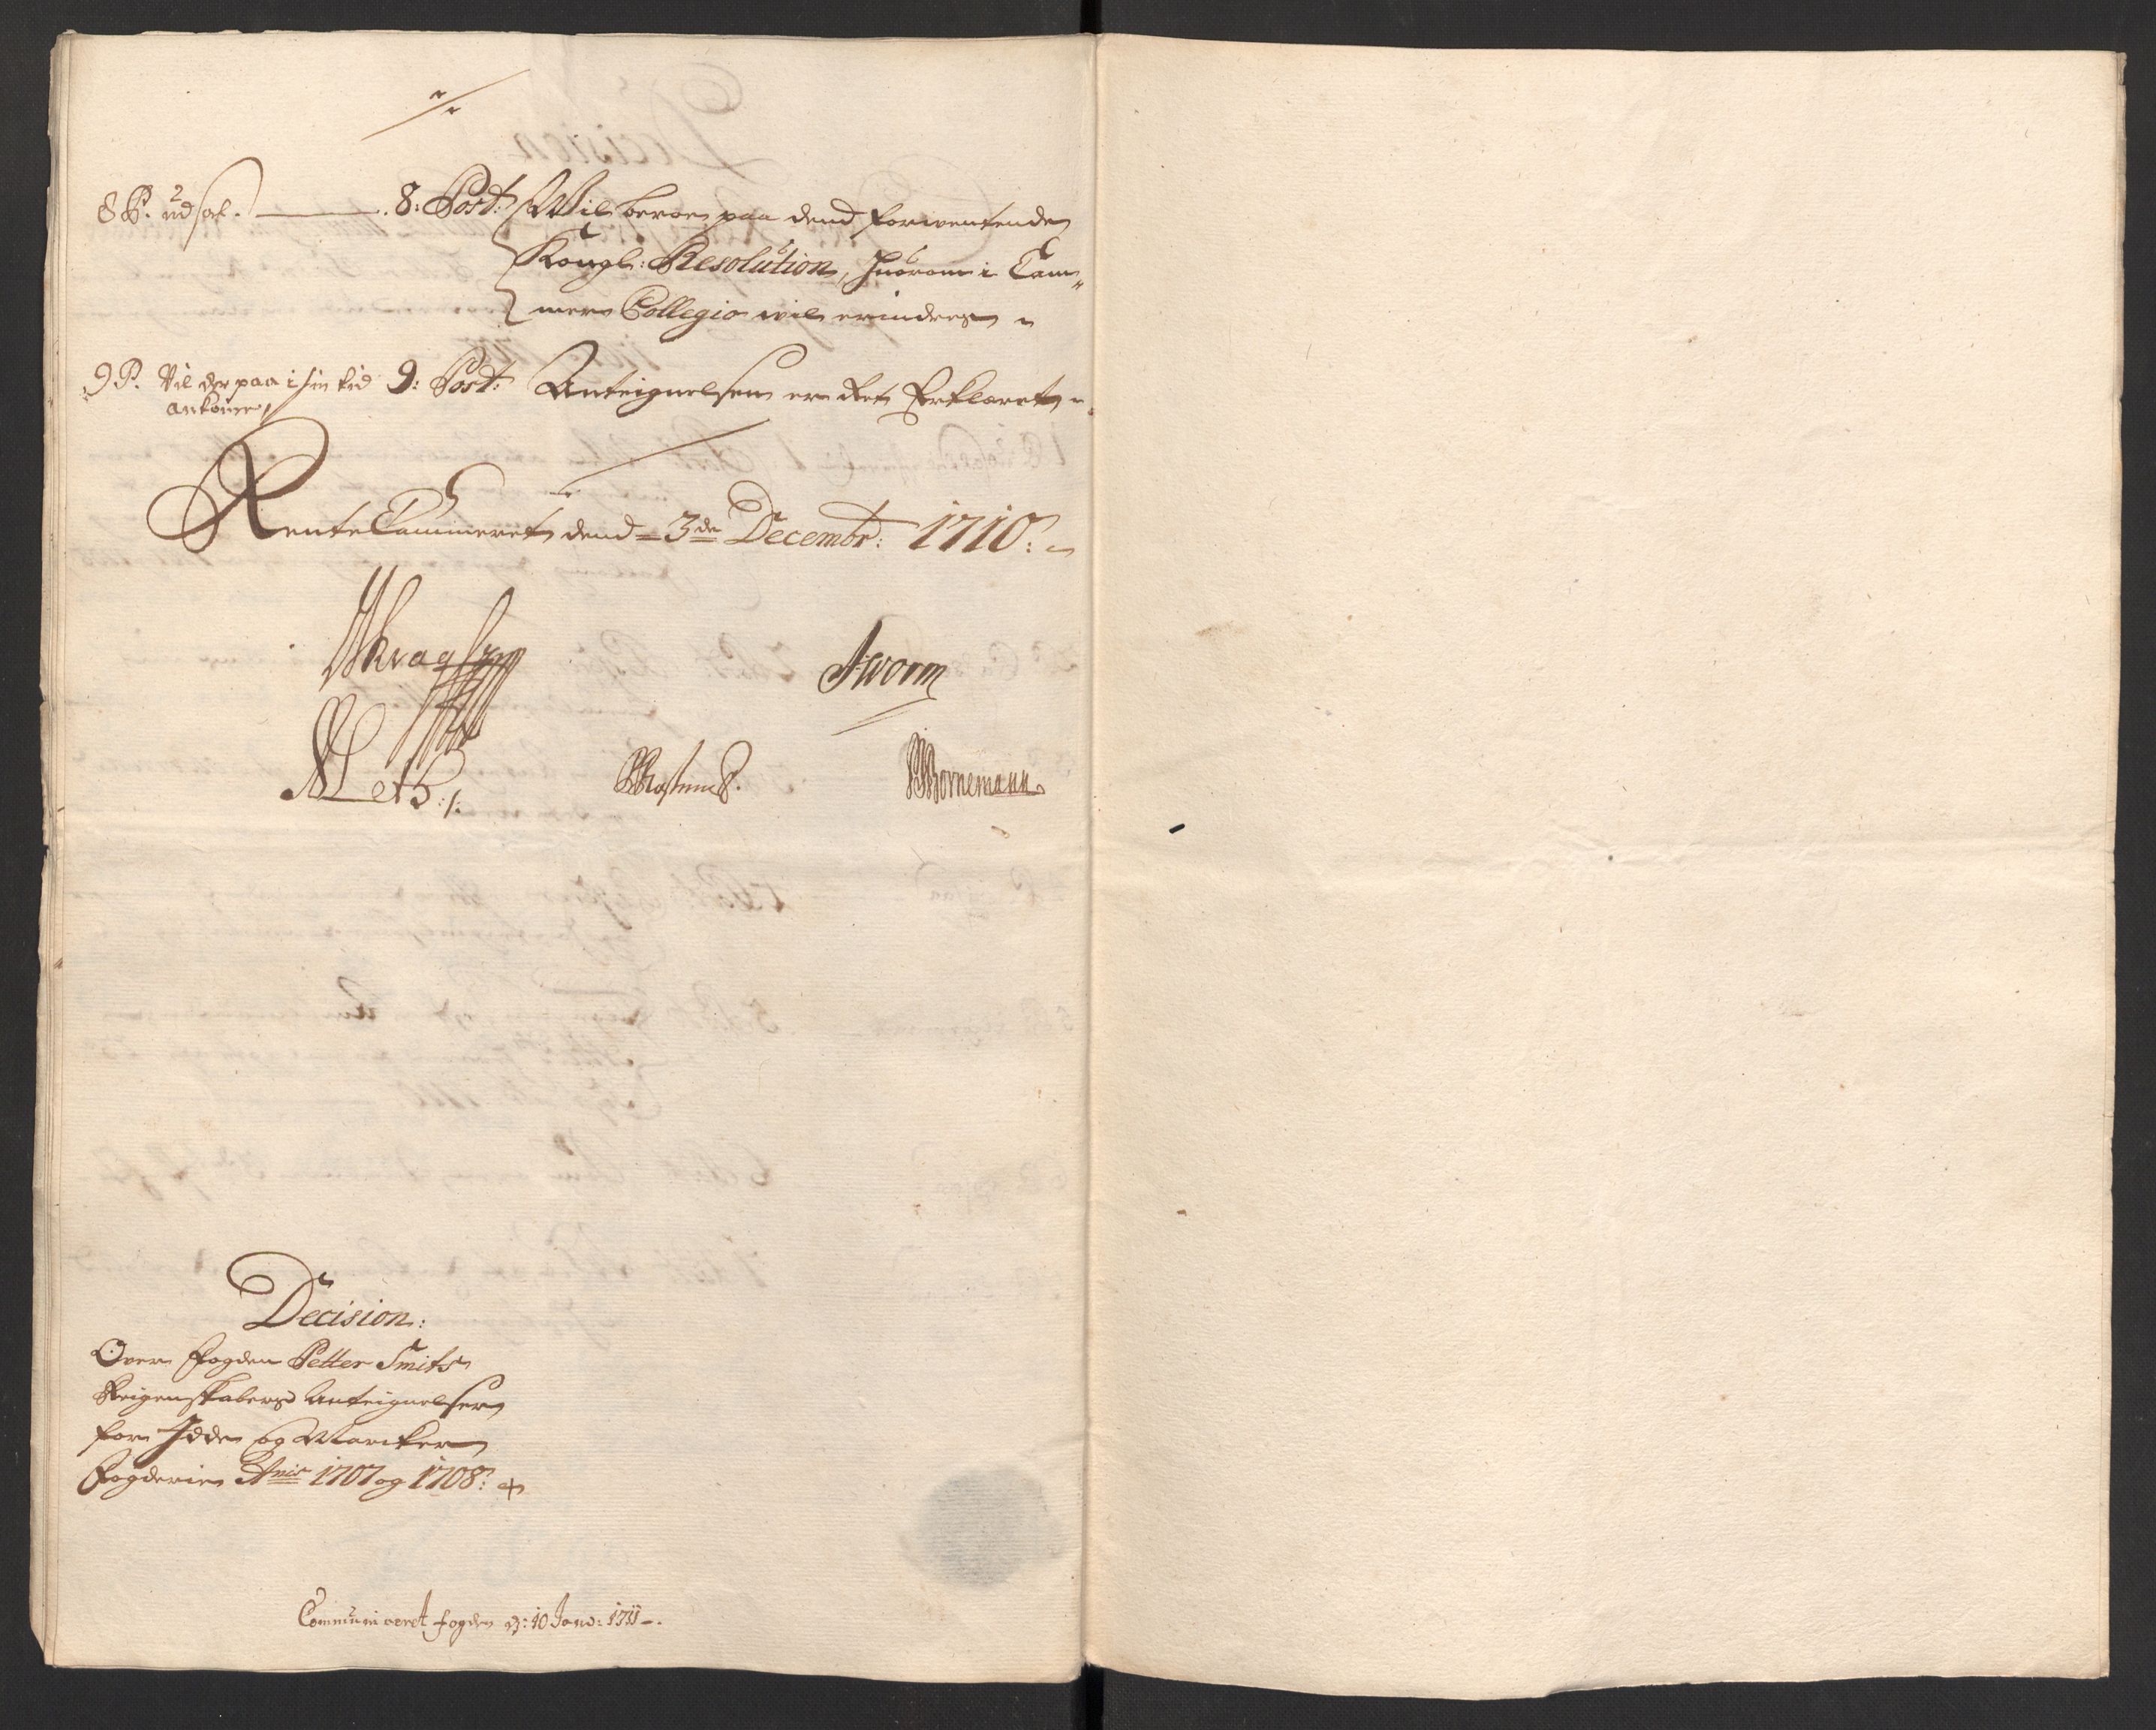 8 P. udsat. 8: Post: Wil beroe paa dend forwentende
Kongl: Resolution, huorom i Cam„
mer Collegio wil erindres
9 P. Vil der paa i sin tid 9: Post: Anteignelsen er Ret Erklæret
ankomme
RenteCammeret dend 3de Decembr: 1710:
Skrag JWorm
Metz:/: Bornemann.
Decision:
Over fogden Petter Smits
Reigenskabers Anteignelser
for Idde og Marcker
fogderie Anis 1707 og 1708:
Communiceret fogden d: 10 Janv: 1711